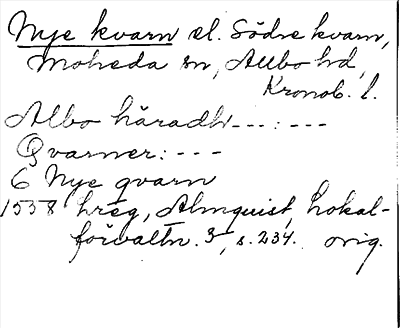 Nye kvarn el. Södre kvarn,
Moheda sn, Allbo hd,
Kronob. l.
Albo häradh ---: ---
Qvarner: ---
6 Nye qvarn
1538 hreg, Almquist, Lokal-
förvaltn. 3, s. 234. orig.